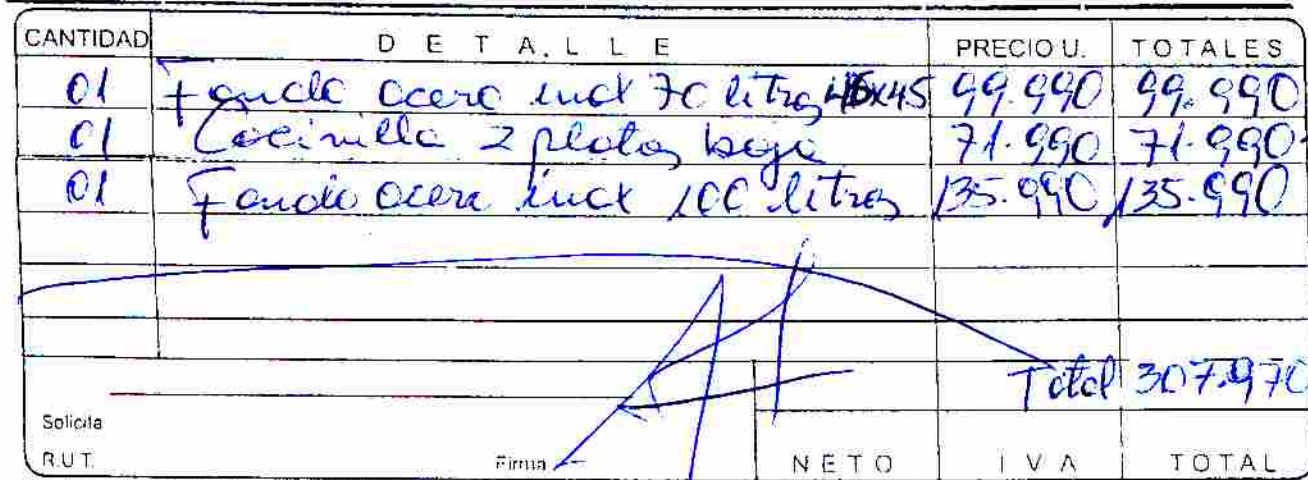 CANTIDAD DETALLE PRECIO U. TOTALES
01 Fondo acero inox 70 litros 45x45 99.990 99.990
01 Cocinilla 2 platos bajo 71.990 71.990
01 Fondo acero inox 100 litros 135.990 135.990
Total 307.970
Solicita
R.U.T. Firma NETO IVA TOTAL